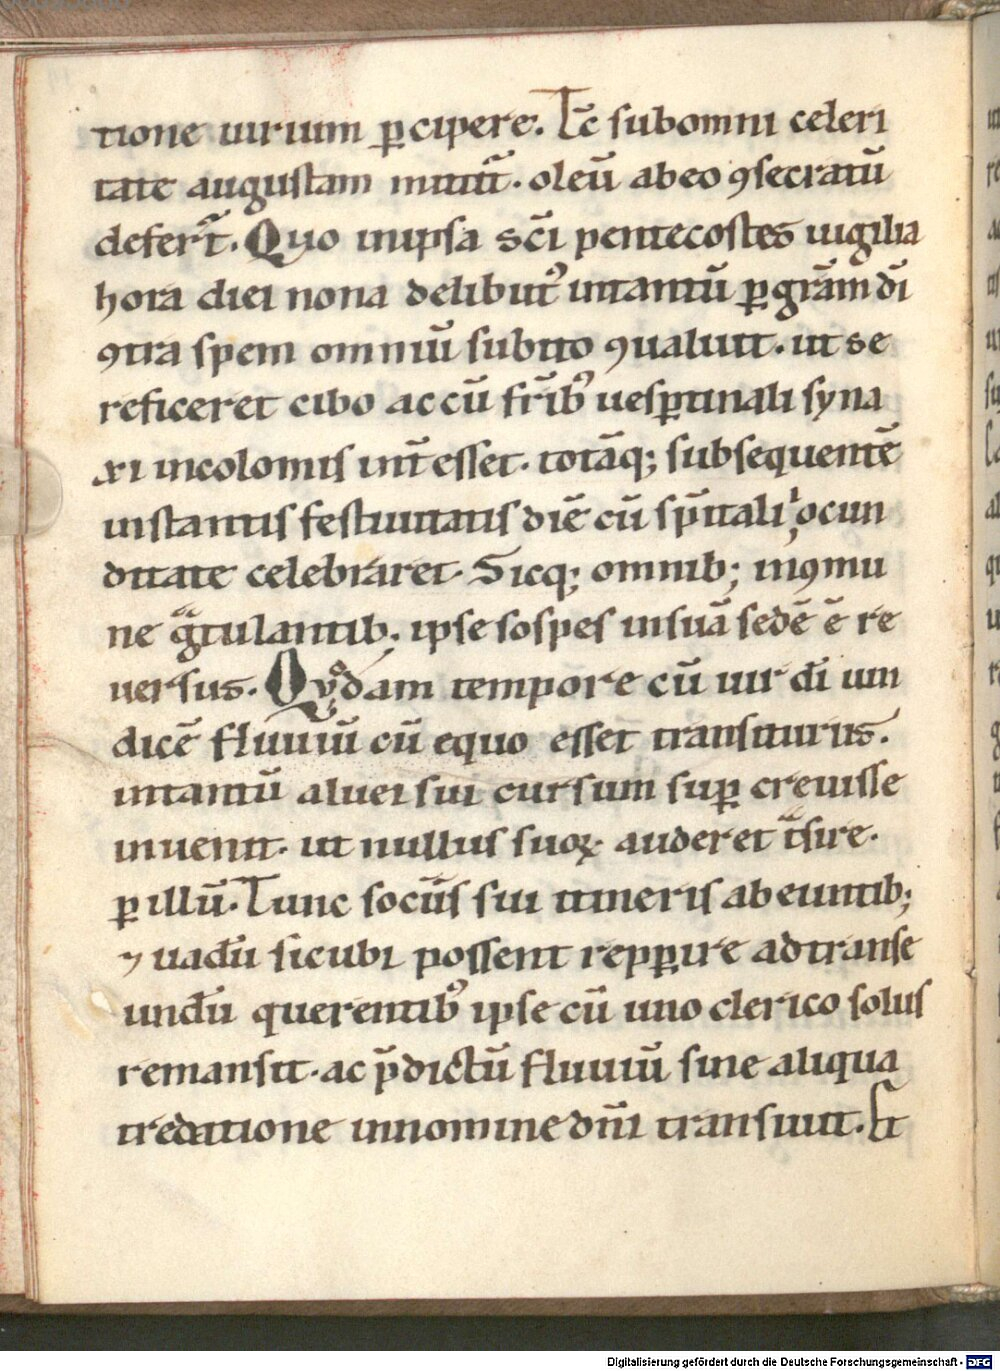 tione uirium ꝑcipere. Tc̄ sub omni celeri
tate augustam mittit̄. oleū ab eo ꝯsecratū
defert̄. Quo in ipsa sc̄i pentecostes uigilia
hora diei nona delibut᾽ in tantū ꝑ gr̄am dī
ꝯtra spem omniū subito ꝯualuit. ut se
reficeret cibo ac cū fr̄ib᾽ uesꝑtinali syna
xi incolomis int̄esset. totāq; subsequentē
instantis festiuitatis diē cū sp̄itali iocun
ditate celebraret. Sicq; omnib; in ꝯmu
ne gͣtulantib; ipse sospes in suā sedē ē re
uersus. Quͦdam tempore cū uir dī uin
dicē fluuiū cū equo esset transiturus.
in tantū aluei sui cursum suꝑ creuisse
inuenit. ut nullus suoꝝ auderet tͣsire.
ꝑ illū. Tunc sociis sui itineris abeuntib;
⁊ uadū sicubi possent repꝑire ad transe
undū querentib᾽ ipse cū uno clerico solus
remansit. ac p̄dictū fluuiū sine aliqua
tredatione in nomine dn̄i transiuit. Et
Digitalisierung gefördert durch die Deutsche Forschungsgemeinschaft - DFG